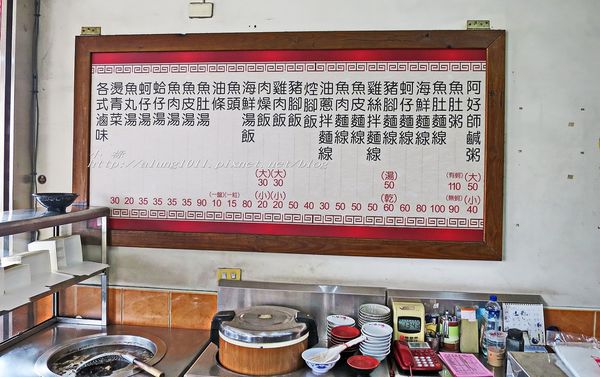 阿好師鹹粥 (大) 50 (小) 40
魚肚粥 (有蚵) 110 (無蚵) 90
魚肚麵線 100
海鮮麵線 80
蚵仔麵線 60
豬腳麵線 (湯) 50 (乾) 60
雞絲拌麵線 50
魚皮麵線 50
魚肉麵線 50
油蔥拌麵線 30
焢腳飯 40
豬腳飯 50
雞肉飯 (大) 30 (小) 20
肉燥飯 (大) 30 (小) 20
海鮮湯飯 80
魚頭 15
油條 10
魚肚湯 90
魚皮湯 50
魚肉湯 50
蛤仔湯 50
蚵仔湯 50
魚丸湯 30
燙青菜 20
各式滷味 30
http://ulung1011.pixnet.net/blog